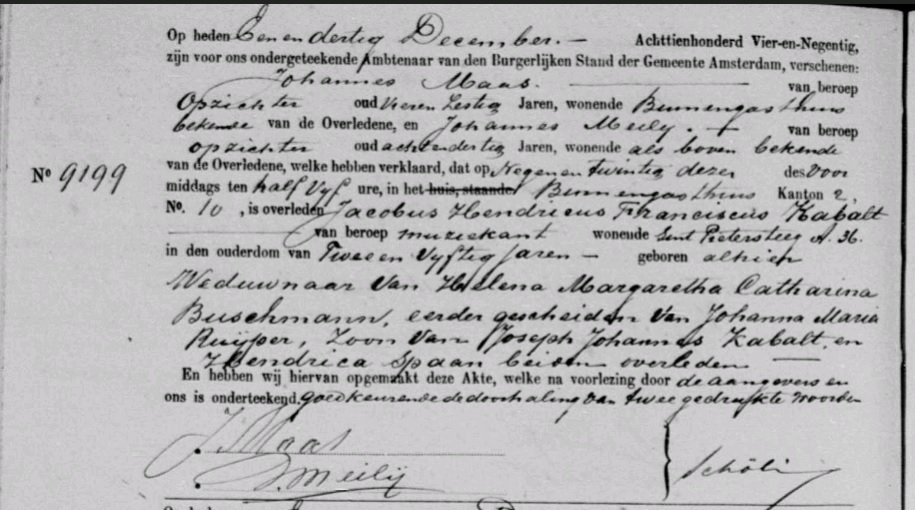 Op heden Een en dertig December. — Achttienhonderd Vier-en-Negentig,
zijn voor ons ondergeteekende Ambtenaar van den Burgerlijken Stand der Gemeente Amsterdam, verschenen:
Johannes Maas. van beroep
Opzichter oud Vier en Zestig Jaren, wonende Binnengasthuis
bekende van de Overledene, en Johannes Meily. — van beroep
opzichter oud acht en dertig Jaren, wonende als boven bekende
van de Overledene, welke hebben verklaard, dat op Negen en twintig dezer des Voor
middags ten half Vyf ure, in het huis, staande Binnengasthuis Kanton 2,
No. 10, is overleden Jacobus Hendricus Franciscus Kabalt
van beroep muziekant wonende Sint Pietersteeg N. 36.
in den ouderdom van Twee en Vyftig Jaren — geboren alhier
Weduwnaar Van Helena Margaretha Catharina
Buschmann, eerder gescheiden Van Johanna Maria
Ruijper, Zoon Van Joseph Johannes Kabalt, en
Hendrica Spaan beiden overleden —
En hebben wij hiervan opgemaakt deze Akte, welke na voorlezing door de aangevers en
ons is onderteekend. goedkeurende de doorhaling van twee gedrukte woorden
No 9199
J. Maas
J. Meilij